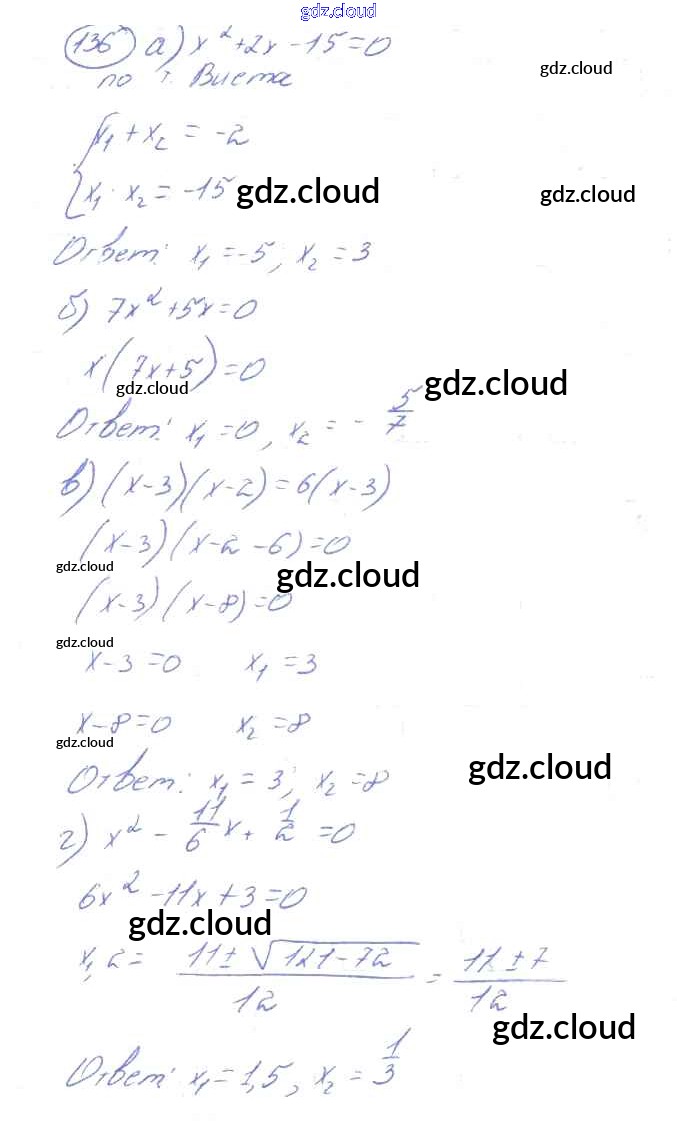 gdz.cloud
136 а) x² + 2x - 15 = 0
gdz.cloud
по т. Виета
x₁ + x₂ = -2
x₁ · x₂ = -15 gdz.cloud gdz.cloud
Ответ: x₁ = -5; x₂ = 3
б) 7x² + 5x = 0
x(7x + 5) = 0
gdz.cloud gdz.cloud
Ответ: x₁ = 0, x₂ = - 5/7
в) (x - 3)(x - 2) = 6(x - 3)
(x - 3)(x - 2 - 6) = 0
gdz.cloud gdz.cloud
(x - 3)(x - 8) = 0
gdz.cloud
x - 3 = 0 x₁ = 3
x - 8 = 0 x₂ = 8
gdz.cloud gdz.cloud
Ответ: x₁ = 3; x₂ = 8
г) x² - 11/6 x + 1/2 = 0
6x² - 11x + 3 = 0
gdz.cloud
x₁,₂ = (11 ± √(121 - 72))/12 = (11 ± 7)/12
gdz.cloud
Ответ: x₁ = 1,5, x₂ = 1/3